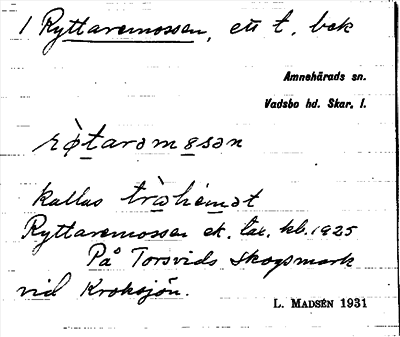 1 Ryttaremossen, ett t. bek
Amnehärads sn.
Vadsbo hd. Skar. l.
rø̀taramɵsən
kallas trähemət
Ryttaremossen ek. lar. kb. 1925
På Torsvids skogsmark
vid Kroksjön.
L. MADSÉN 1931